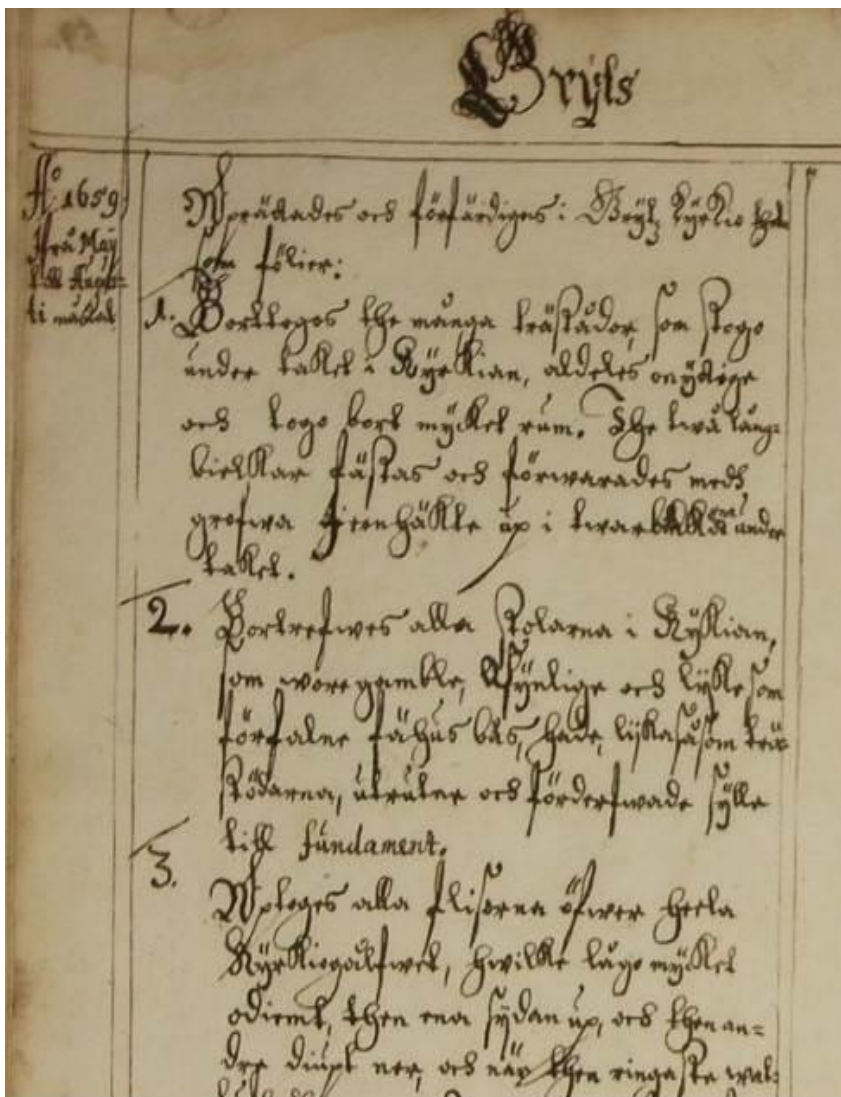 Gryts
Ao 1659
Ifrå Maij
till Augus-
ti månat
Uprättades och förfärdiges i Grytz Kyrkio thet
som fölier:
1. Borttogos the många trästådor, som stogo
under taket i Kyrkian, aldeles onyttige
och togo bort mycket rum. The twå lång-
bielkar fästas och förwarades medh
grofwa Jernhäkte up i twarb under
taket.
2. Bortrefwes alla stolarna i Kyrkian,
som wore gamble, och lyke som
förfalne fähus bås, hade, lijkasåsom trä-
stödarna, utrutne och förderfwade sylle
till fundament.
3. Uptoges alla flisorna öfwer heela
Kyrkiogålfwet, hwilke lågo mycket
odiemt, then ena sydan up, och then an-
dre diupt ner, och när then ringaste wat-